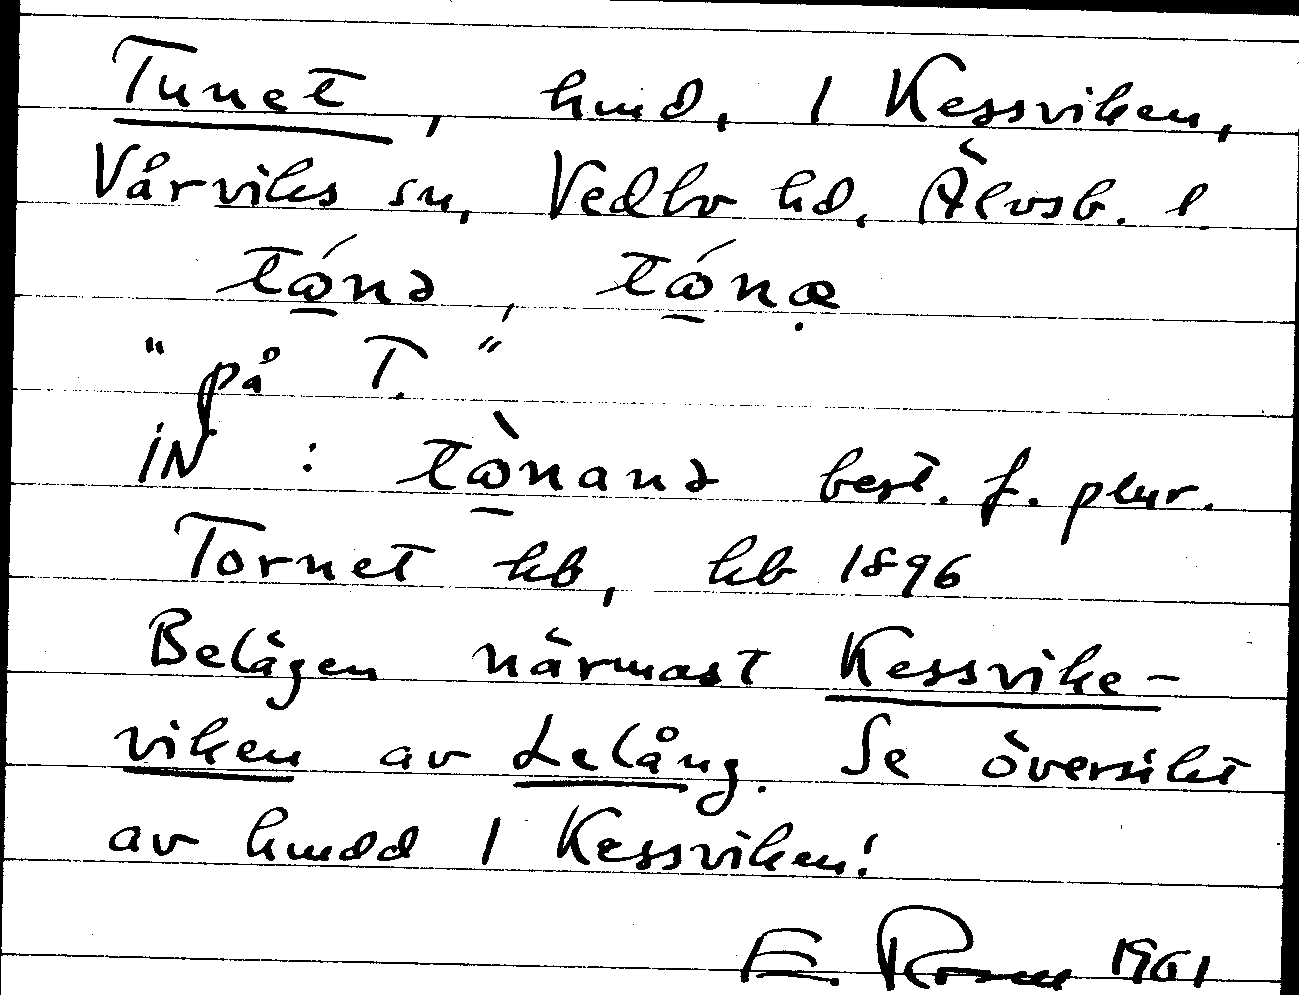 Tunet, hmd, 1 Kessviken,
Vårviks sn, Vedbo hd, Älvsb. l
tǿnə, tǿnæ
"på T."
iN : tønanə best. f. plur.
Tornet kb, hb 1896
Belägen närmast Kessvike-
viken av Lelång. Se översikt
av hmdd 1 Kessviken!
E. 1961